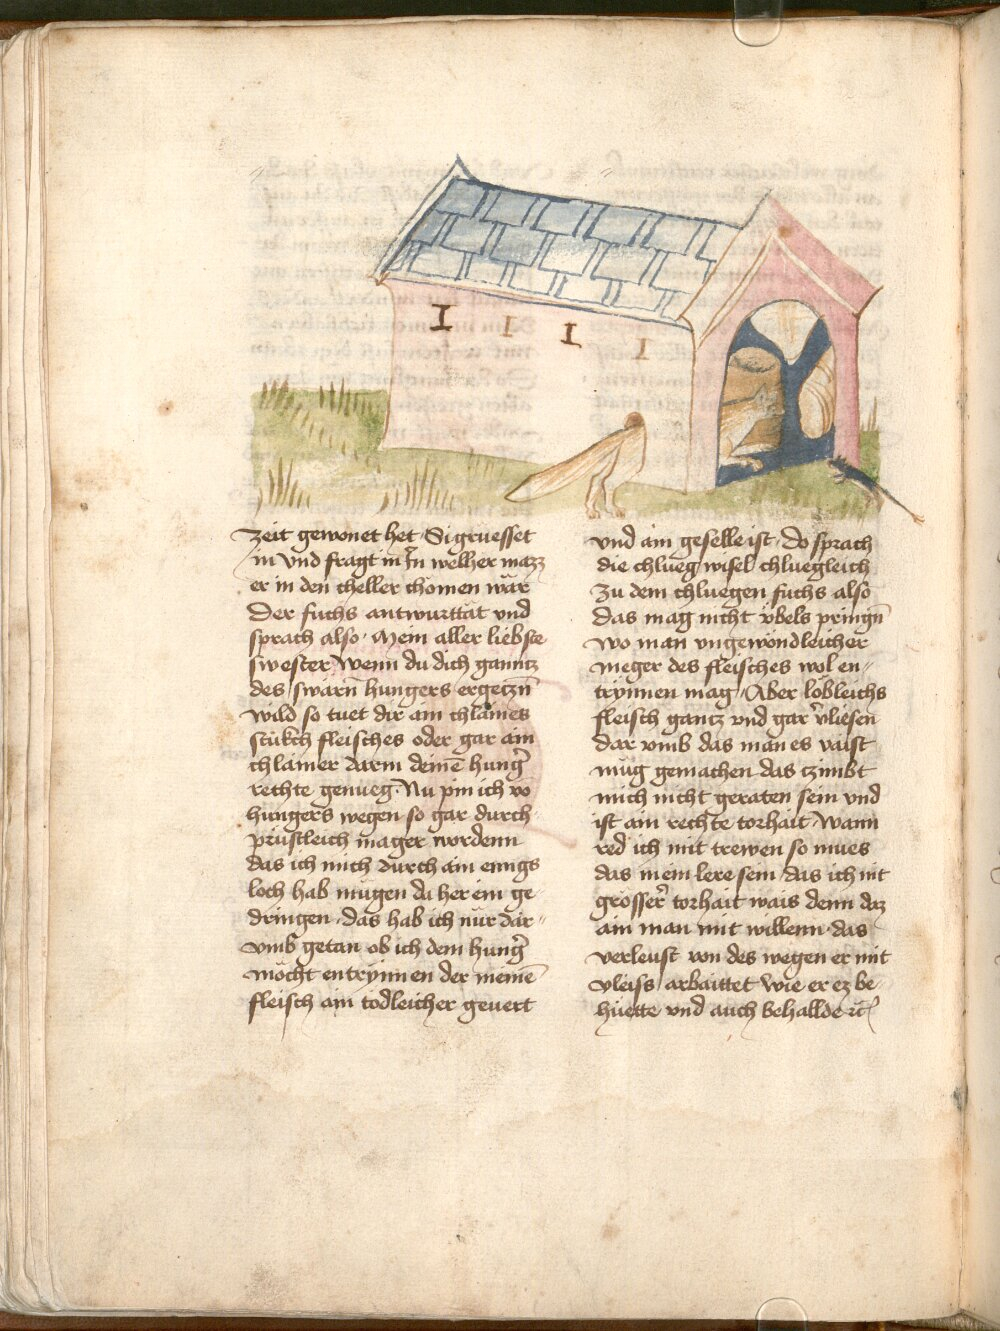 zeit gewonet het · Si gruesset
in vnd fragt in In welher mazz
er in den cheller chomen wår
Der fuchs antwurttat vnd
sprach also · Mein aller liebste
swester Wenn du dich ganntz
des swårn hungers ergetzn̄
wild so tuet dir ain chlaines
stukch fleisches oder gar ain
chlainer darm deinē hung̉
rechte genueg · Nu pin ich vo
hungers wegen so gar durch
prüstleich mager wordenn
das ich mich durch ain enngs
loch hab mügen da her ein ge
dringen · das hab ich nur dar〃
vmb getan ob ich dem hung̉
möcht entrynnen der meinē
fleisch ain todleicher geuert
vnd ain geselle ist · do sprach
die chlueg wisel chluegleich
zu dem chluegen fuchs also
das mag nicht v̈bels pringn̄
wo man vngewöndleicher
meger des fleisches wol en〃
trynnen mag · Aber lobleichs
fleisch gantz vnd gar v̉liesen
dar vmb das man es vaist
müg gemachen das tzimbt
mich nicht geraten sein vnd
ist ain rechte torhait · Wann
red ich mit trewen so mues
das mein lere sein das ich nit
grösser̉ torhait wais denn daz
ain man mit willenn · das
verleust von des wegen er mit
vleiss arbaittet wie er ez be
hüette vnd auch behallde ꝛc̄